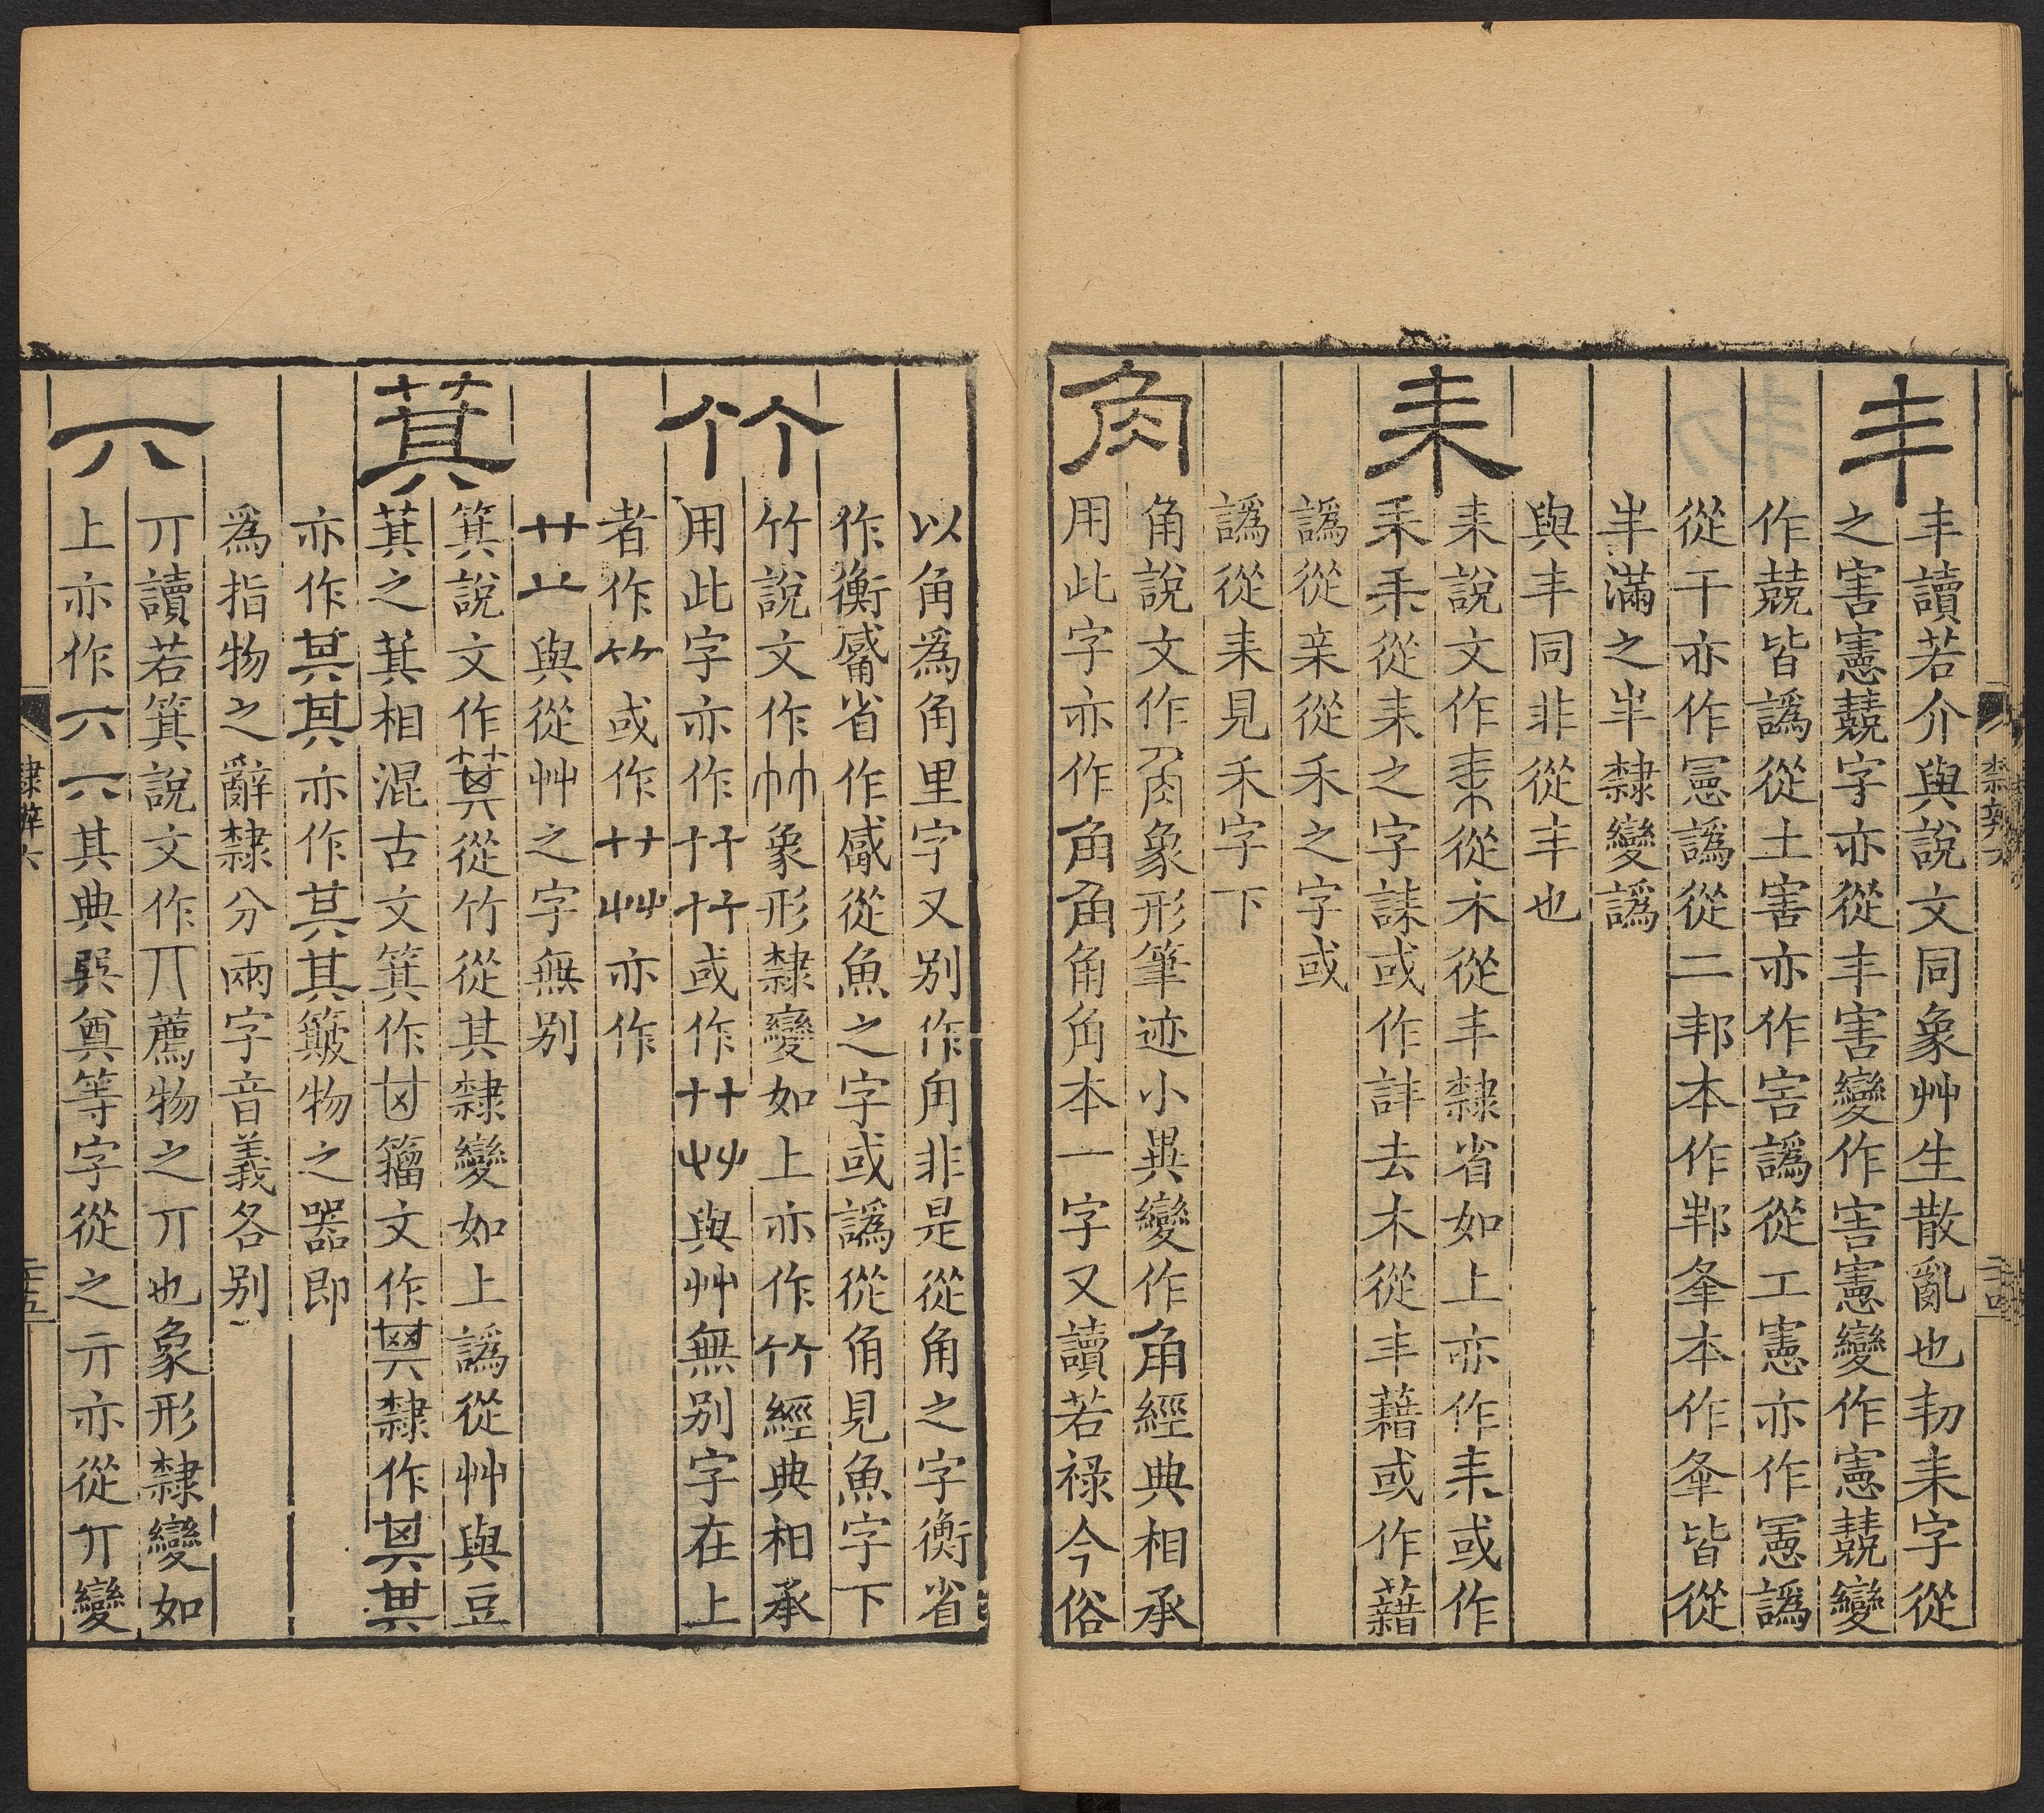 丯
丯讀若介與說文同象艸生散亂也㓞耒字從
之害憲𡙇字亦從丯害變作害憲變作憲𡙇變
作兢皆譌從土害亦作害譌從工憲亦作𢡱譌
從干亦作𢡱譌從二邦本作邦夆本作夆皆從
半滿之半隸變譌
與丯同非從丯也
耒
耒說文作耒從木從丯隸省如上亦作耒或作
耒耒從耒之字誄或作詳去木從丯藉或作藉
譌從亲從禾之字或
譌從耒見禾字下
角
角說文作角象形筆迹小異變作角經典相承
用此字亦作角角角角本一字又讀若祿今俗
以角為角里字又別作角非是從角之字衡省
作衡觱省作觱從魚之字或譌從角見魚字下
竹
竹說文作竹象形隸變如上亦作竹經典相承
用此字亦作或作與艸無別字在上
者作或作亦作
艹䒑與從艸之字無別
萁
箕說文作箕從竹從其隸變如上譌從艸與豆
萁之萁相混古文箕作籀文作隸作其其
亦作其其亦作其其簸物之器即
為指物之辭隸分兩字音義各別
六
丌讀若箕說文作丌薦物之丌也象形隸變如
上亦作六六其典㢲奠等字從之亓亦從丌變
隸辨六
二十四
隸辨六
二十五